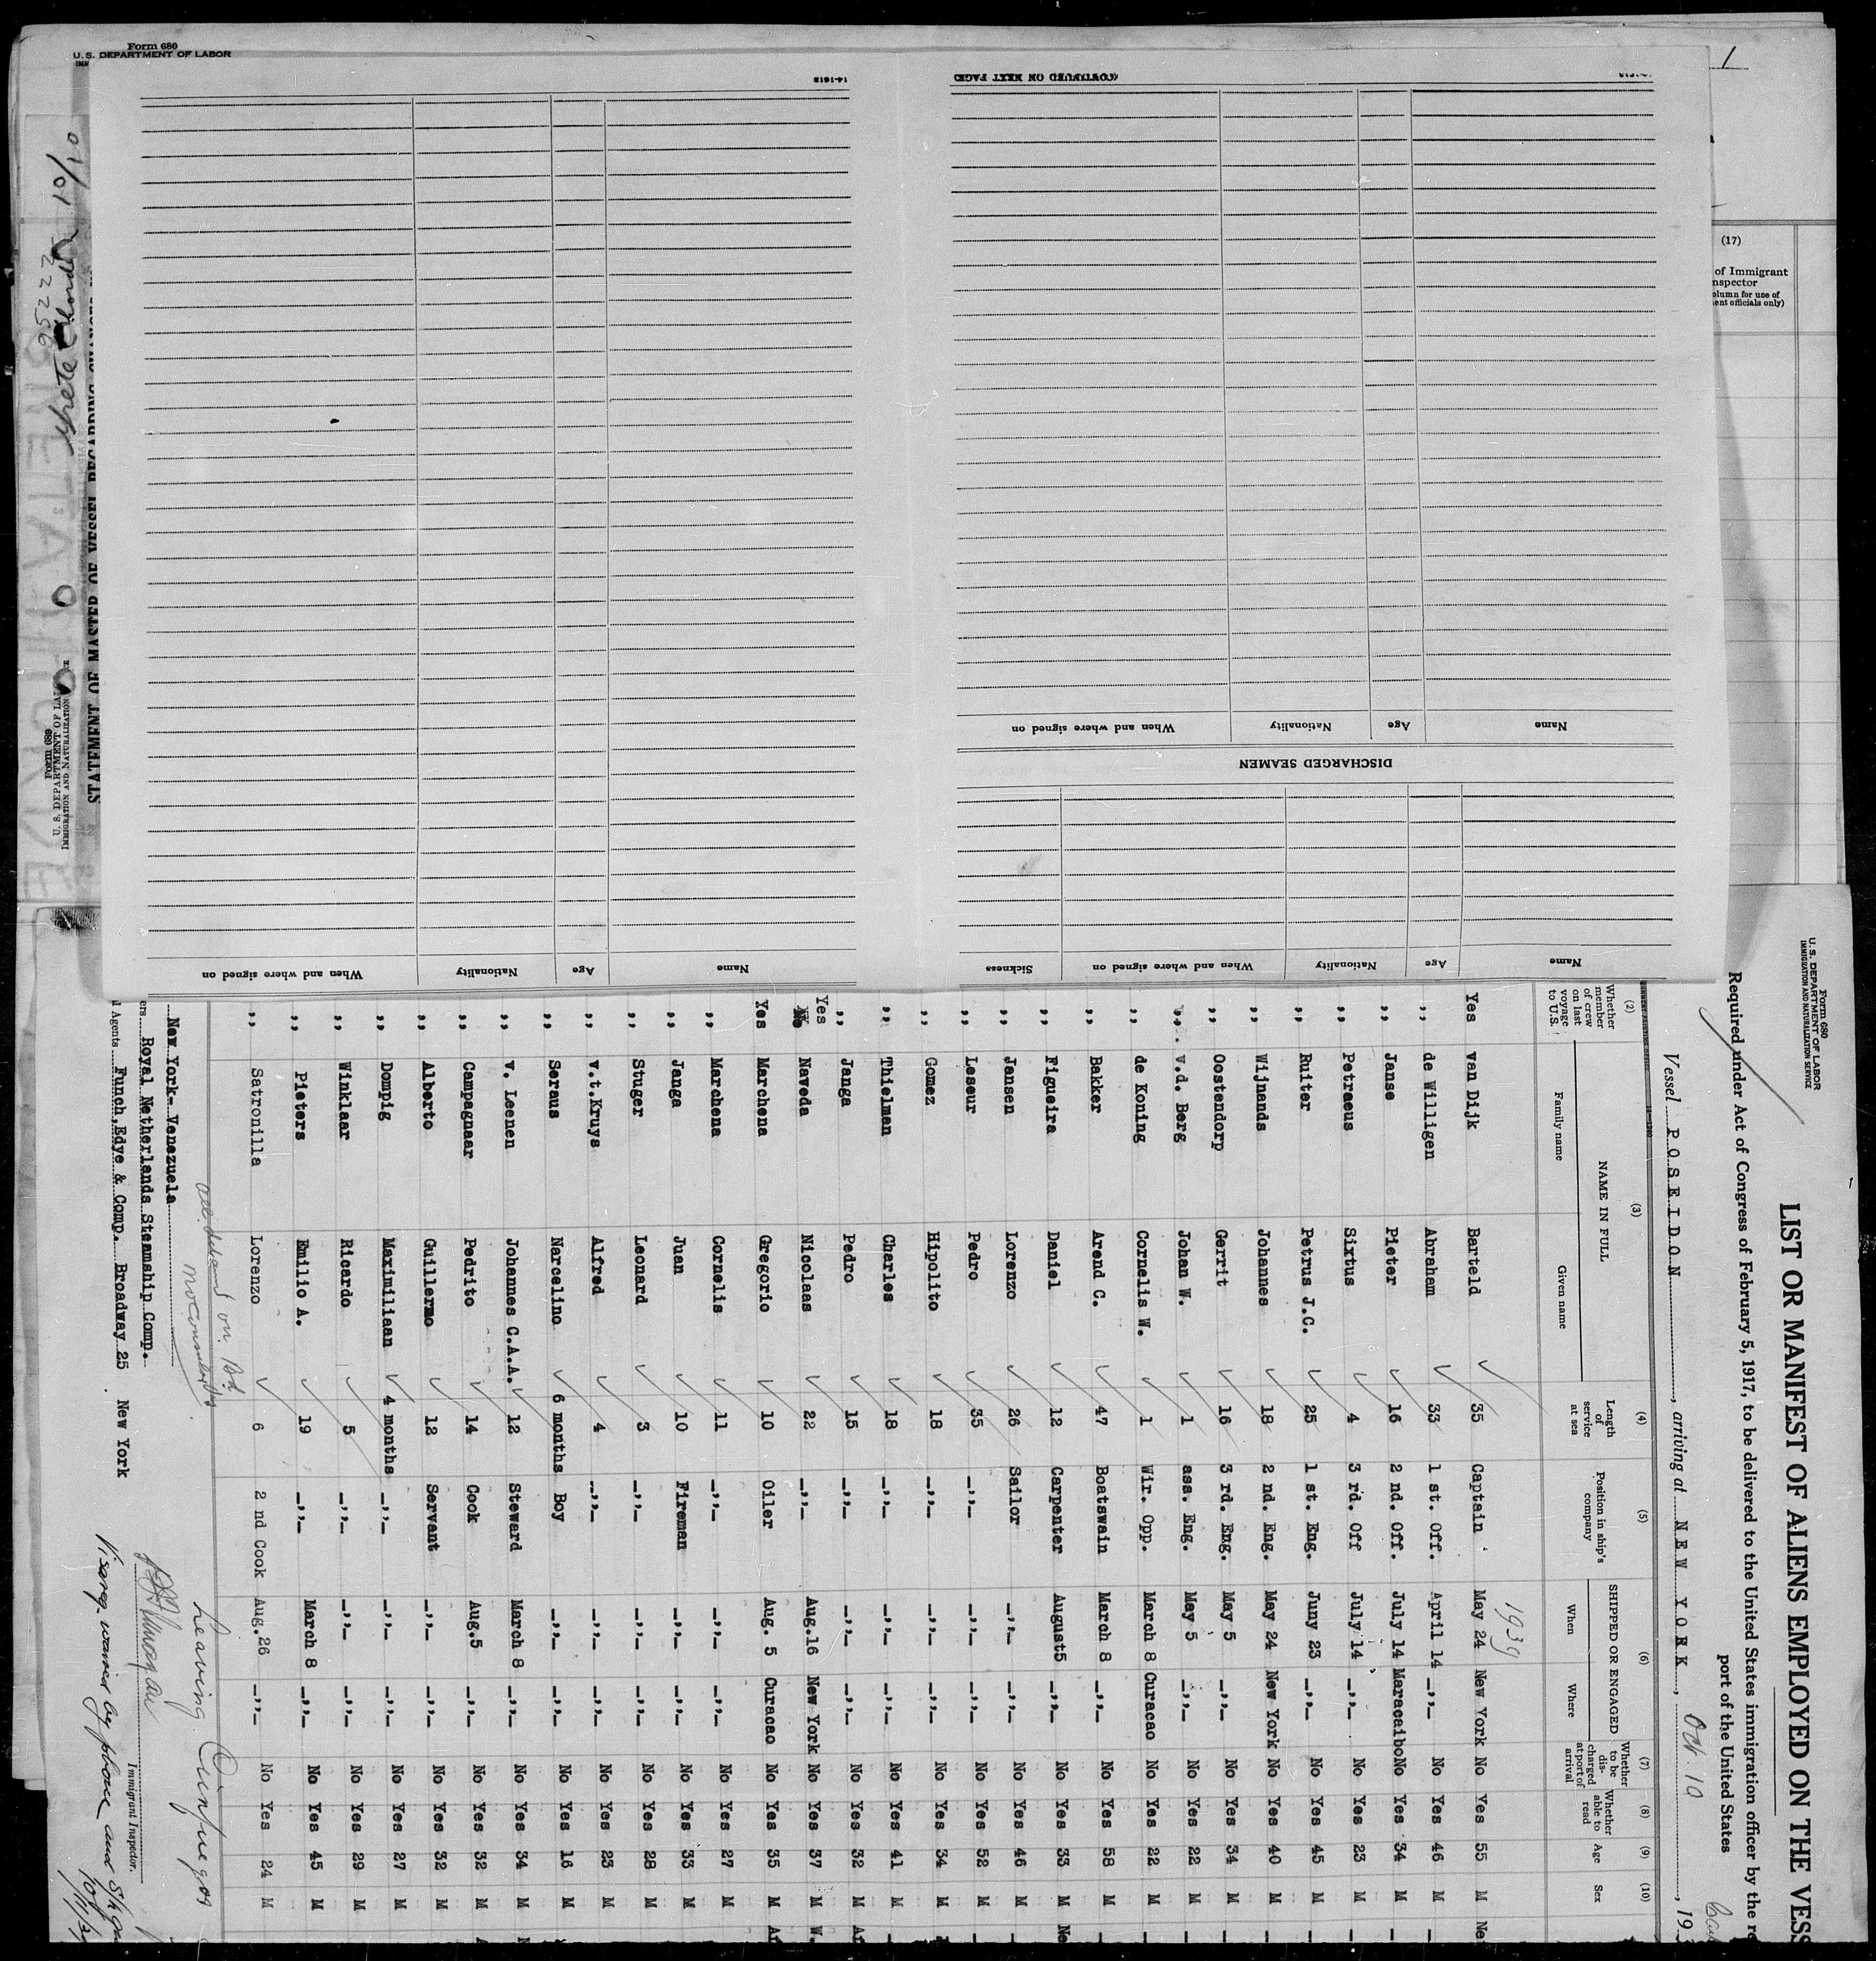 Form 680
U. S. DEPARTMENT OF LABOR
1
(17)
of Immigrant
nspector
olumn for use of
ent officials only)
14-1618
(CONTINUED ON NEXT PAGE)
Name Age Nationality When and where signed on
DISCHARGED SEAMEN
Name Age Nationality When and where signed on Sickness
Name Age Nationality When and where signed on
STATEMENT OF MASTER OF VESSEL REGARDING CHANGES
Form 689
U. S. DEPARTMENT OF LABOR
IMMIGRATION AND NATURALIZATION
95222
10/10
Form 680
U. S. DEPARTMENT OF LABOR
IMMIGRATION AND NATURALIZATION SERVICE
LIST OR MANIFEST OF ALIENS EMPLOYED ON THE VESS
Required under Act of Congress of February 5, 1917, to be delivered to the United States immigration officer by the re
port of the United States
Vessel POSEIDON, arriving at NEW YORK, Oct 10, 193
(2) (3) (4) (5) (6) (7) (8) (9) (10)
Whether member of crew on last voyage to U.S. NAME IN FULL Family name Given name Length of service at sea Position in ship's company SHIPPED OR ENGAGED When Where Whether to be discharged at port of arrival Whether able to read Age Sex
1939
Yes van Dijk Barteld 35 Captain May 24 New York No Yes 55 M Ne
,, de Willigen Abraham 33 1 st. Off. April 14 -,,- No Yes 46 M
,, Janse Pieter 16 2 nd. Off. July 14 Maracaibo No Yes 34 M
,, Petraeus Sixtus 4 3 rd. Off July 14 -,,- No Yes 23 M
,, Ruiter Petrus J.C. 25 1 st. Eng. Juny 23 -,,- No Yes 45 M
,, Wijnands Johannes 18 2 nd. Eng. May 24 New York No Yes 40 M
,, Oostendorp Gerrit 16 3 rd. Eng. May 5 -,,- No Yes 34 M
,, v.d. Berg Johan W. 1 ass. Eng. May 5 -,,- No Yes 22 M
,, de Koning Cornelis W. 1 Wir. Opp. March 8 Curacao No Yes 22 M
,, Bakker Arend C. 47 Boatswain March 8 -,,- No Yes 58 M
,, Figueira Daniel 12 Carpenter August5 -,,- No Yes 33 M Ne
,, Jansen Lorenzo 26 Sailor -,,- -,,- No Yes 46 M
,, Leseur Pedro 35 -,,- -,,- -,,- No Yes 52 M
,, Gomez Hipolito 18 -,,- -,,- -,,- No Yes 34 M
,, Thielman Charles 18 -,,- -,,- -,,- No Yes 41 M
,, Janga Pedro 15 -,,- -,,- -,,- No Yes 32 M Af
Yes No Naveda Nicolaas 22 -,,- Aug.16 New York No Yes 37 M W.
Yes Marchena Gregorio 10 Oiler Aug. 5 Curacao No Yes 35 M Af
,, Marchena Cornelis 11 -,,- -,,- -,,- No Yes 27 M
,, Janga Juan 10 Fireman -,,- -,,- No Yes 33 M
,, Stuger Leonard 3 -,,- -,,- -,,- No Yes 28 M
,, v.t.Kruys Alfred 4 -,,- -,,- -,,- No Yes 23 M
,, Seraus Narcelino 6 months Boy -,,- -,,- No Yes 16 M
,, v. Leenen Johannes C.A.A. 12 Steward March 8 -,,- No Yes 34 M
,, Campagnaar Pedrito 14 Cook Aug.5 -,,- No Yes 32 M
,, Alberto Guillermo 12 Servant -,,- -,,- No Yes 32 M
,, Dompig Maximiliaan 4 months -,,- -,,- -,,- No Yes 27 M
,, Winklaar Ricardo 5 -,,- -,,- -,,- No Yes 29 M
,, Pieters Emilio A. 19 -,,- March 8 -,,- No Yes 45 M
,, Satronilla Lorenzo 6 2 nd Cook Aug.26 -,,- No Yes 24 M
New York- Venezuela
ers Royal Netherlands Steamship Comp.
Agents Funch,Edye & Comp. Broadway 25 New York
leaving Cienfuegos
Immigrant Inspector.
waived by phone and
10/11/3